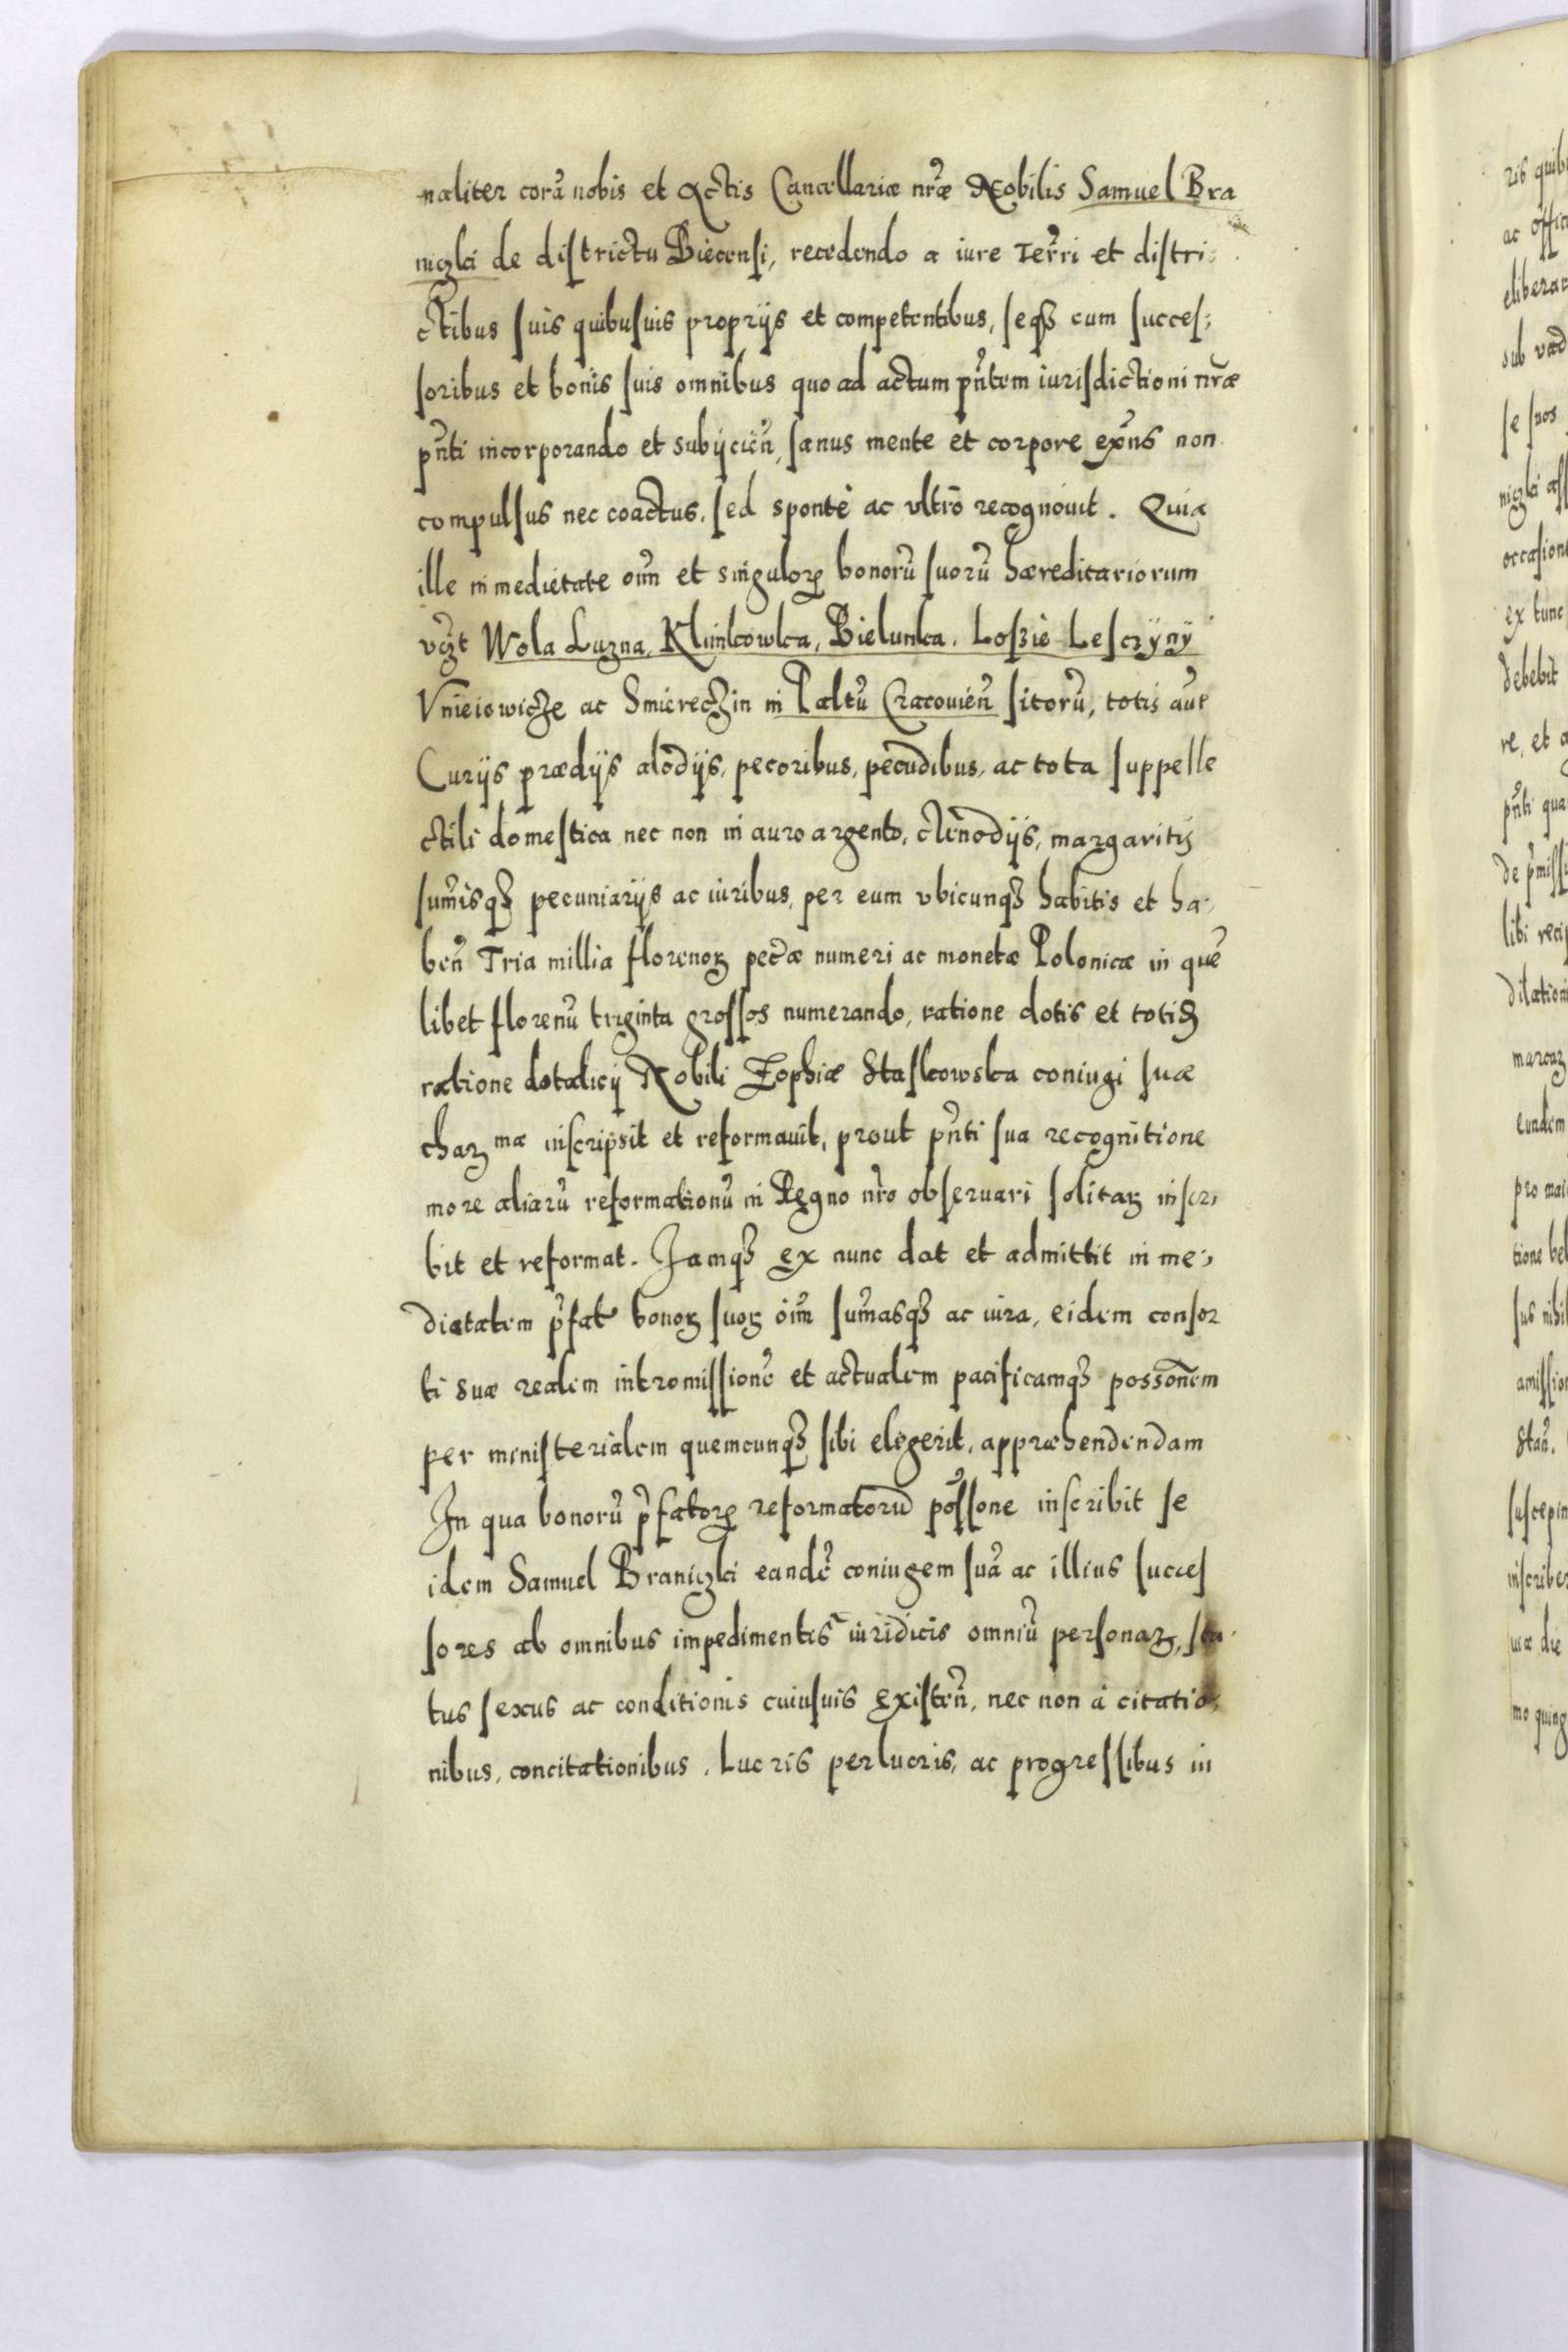 naliter corā nobis et Actis Cancellariæ nr̄æ Nobilis Samuel Bra
niczki de districtu Biecensi, recedendo a iure Terr̄i et distri:
ctibus suis quibusuis proprijs et competentibus, seqȝ cum succes:
soribus et bonis suis omnibus quo ad actum pn̄tem iurisdictioni nr̄æ
pn̄ti incorporando et subijcień, sanus mente et corpore exn̄s non
compulsus nec coactus, sed sponte ac vltrō recognouit. Quia
ille in medietate oīm et singuloꝝ bonorū suorū hæreditariorum
vcȝt Wola Luzna, Klimkowka, Bielanka, Loszie Lesczÿnÿ
Vnieiowicze ac Smiereczin in Paltū Cracouień sitorū, totis aūt
Curijs prædijs alodijs, pecoribus, pecudibus, ac tota suppelle
ctili domestica nec non in auro argento, clenodijs, margaritis
sum̄isqȝ pecuniarijs ac iuribus, per eum vbicunqȝ habitis et ha:
beń Tria millia florenoꝝ pec̄æ numeri ac monetæ Polonicæ in quē
libet florenū triginta grossos numerando, ratione dotis et totiđ
ratione dotalicij Nobili Zophiæ Staskowska coniugi suæ
chaꝝ mæ inscripsit et reformauit, prout pn̄ti sua recognitione
more aliarū reformationū in Regno nr̄o obseruari solitaꝝ inscri
bit et reformat. Jamqȝ ex nunc dat et admittit in me:
dietatem p̄fat bonoꝝ suoꝝ oīm sum̄asqȝ ac iura, eidem consor
ti suæ realem intromissionē et actualem pacificamqȝ possōnem
per ministerialem quemcunqȝ sibi elegerit, appræhendendam
In qua bonorū p̄fatoꝝ reformatorū possōne inscribit se
idem Samuel Braniczki eandē coniugem suā ac illius succes
sores ab omnibus impedimentis iuridicis omniū personaꝝ, sta
tus sexus ac conditionis cuiusuis existeń, nec non à citatio:
nibus, concitationibus. Lucris perlucris, ac progressibus in
ris quib
ac offici
eliberar
sub vad
se suos
niczki ass
occasion
ex tunc
debebit
re, et a
pn̄ti qua
de p̄miss
libi recip
dilation
marcaꝝ
eundem
pro mai
tione bel
sus nihil
amission
Stań.
suscepm
inscribe
uæ die
mo quing